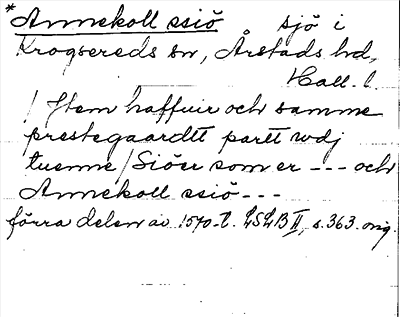 *Annekoll ssiö sjö i
Krogsereds sn, Årstads hd,
Hall. l.
/ Item haffuir och samme
prestegaardtt partt udj
tuenne / Siöer som er --- och
Annekoll ssiö ---
förra delen av 1570-t. LSLB II, s. 363. orig.